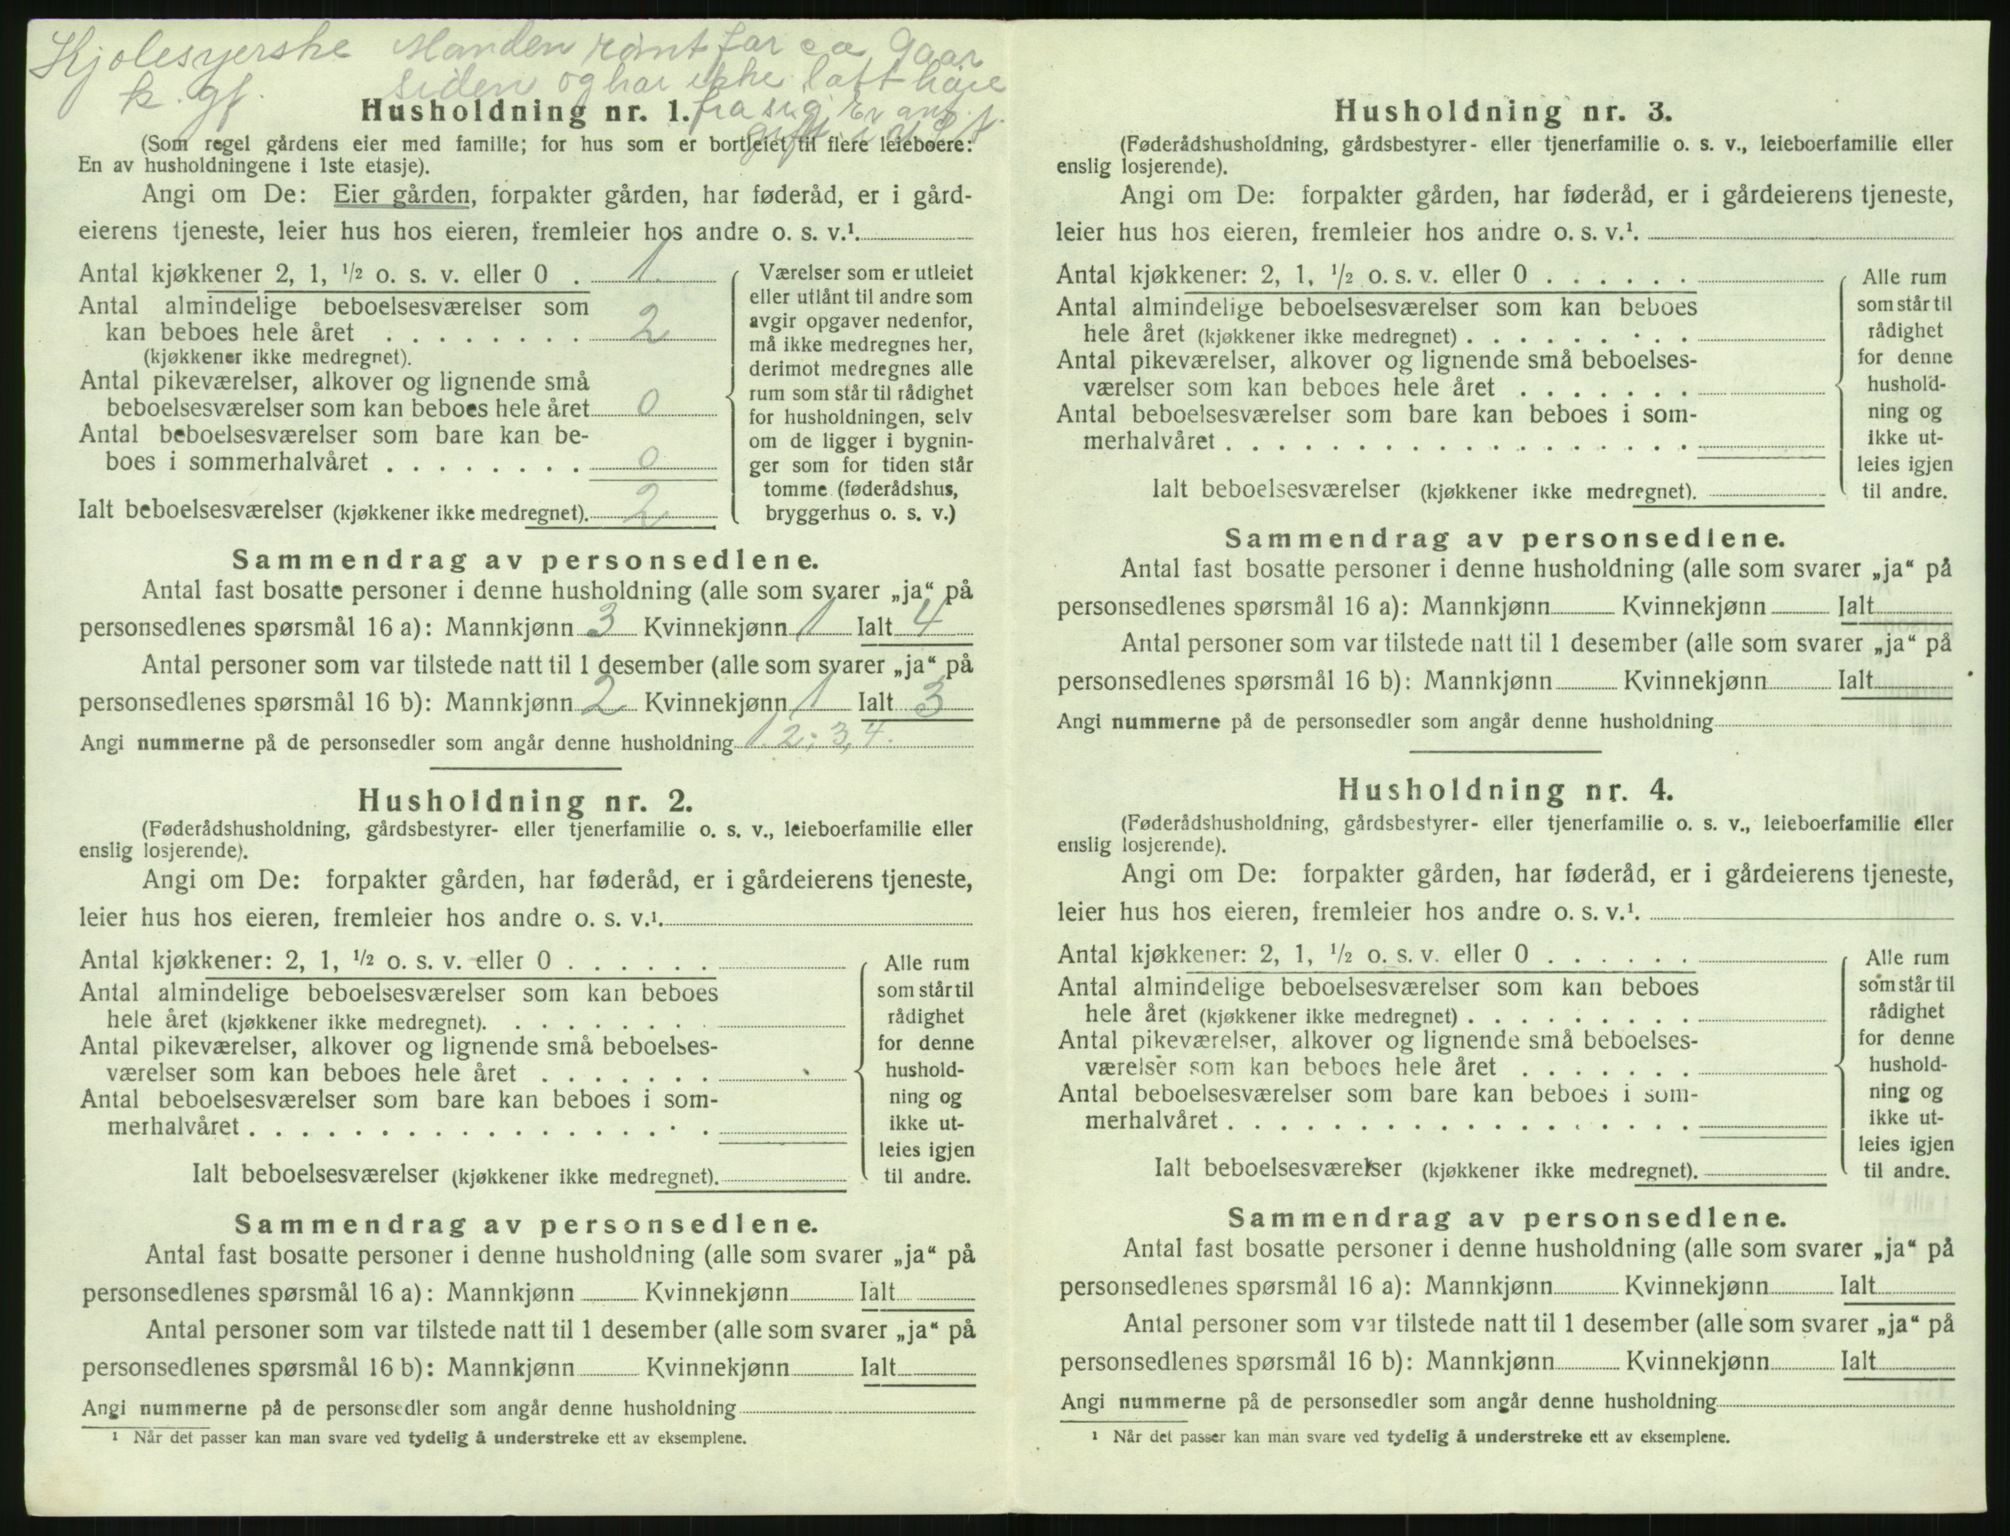 Kjolesyerske Manden rømt for ca 9 aar
k. gf. siden og har ikke latt høre
fra sig. Er ant.
gift i
Husholdning nr. 1.
(Som regel gårdens eier med familie; for hus som er bortleiet til flere leieboere:
En av husholdningene i 1ste etasje).
Angi om De: Eier gården, forpakter gården, har føderåd, er i gård-
eierens tjeneste, leier hus hos eieren, fremleier hos andre o. s. v.¹.
Antal kjøkkener 2, 1, ½ o. s. v. eller 0 . 1.
Antal almindelige beboelsesværelser som
kan beboes hele året . . . . . . . . 2
(kjøkkener ikke medregnet).
Antal pikeværelser, alkover og lignende små
beboelsesværelser som kan beboes hele året 0
Antal beboelsesværelser som bare kan be-
boes i sommerhalvåret . . . . . . . . 0
Ialt beboelsesværelser (kjøkkener ikke medregnet). 2
Værelser som er utleiet
eller utlånt til andre som
avgir opgaver nedenfor,
må ikke medregnes her,
derimot medregnes alle
rum som står til rådighet
for husholdningen, selv
om de ligger i bygnin-
ger som for tiden står
tomme (føderådshus,
bryggerhus o. s. v.)
Sammendrag av personsedlene.
Antal fast bosatte personer i denne husholdning (alle som svarer „ja“ på
personsedlenes spørsmål 16 a): Mannkjønn 3 Kvinnekjønn 1 Ialt 4
Antal personer som var tilstede natt til 1 desember (alle som svarer „ja“ på
personsedlenes spørsmål 16 b): Mannkjønn 2 Kvinnekjønn 1 Ialt 3
Angi nummerne på de personsedler som angår denne husholdning 1. 2; 3, 4.
Husholdning nr. 2.
(Føderådshusholdning, gårdsbestyrer- eller tjenerfamilie o. s. v., leieboerfamilie eller
enslig losjerende).
Angi om De: forpakter gården, har føderåd, er i gårdeierens tjeneste,
leier hus hos eieren, fremleier hos andre o. s. v.¹.
Antal kjøkkener: 2, 1, ½ o. s. v. eller 0 . . . . . .
Antal almindelige beboelsesværelser som kan beboes
hele året (kjøkkener ikke medregnet). . . . . . . . .
Antal pikeværelser, alkover og lignende små beboelses-
værelser som kan beboes hele året . . . . . . .
Antal beboelsesværelser som bare kan beboes i som-
merhalvåret . . . . . . . . . . . . . . . . .
Ialt beboelsesværelser (kjøkkener ikke medregnet).
Alle rum
som står til
rådighet
for denne
hushold-
ning og
ikke ut-
leies igjen
til andre.
Sammendrag av personsedlene.
Antal fast bosatte personer i denne husholdning (alle som svarer „ja“ på
personsedlenes spørsmål 16 a): Mannkjønn Kvinnekjønn Ialt
Antal personer som var tilstede natt til 1 desember (alle som svarer „ja“ på
personsedlenes spørsmål 16 b): Mannkjønn Kvinnekjønn Ialt
Angi nummerne på de personsedler som angår denne husholdning
¹ Når det passer kan man svare ved tydelig å understreke ett av eksemplene.
Husholdning nr. 3.
(Føderådshusholdning, gårdsbestyrer- eller tjenerfamilie o. s. v., leieboerfamilie eller
enslig losjerende).
Angi om De: forpakter gården, har føderåd, er i gårdeierens tjeneste,
leier hus hos eieren, fremleier hos andre o. s. v.¹.
Antal kjøkkener: 2, 1, ½ o. s. v. eller 0 . . . . . .
Antal almindelige beboelsesværelser som kan beboes
hele året (kjøkkener ikke medregnet) . . . . . . . . .
Antal pikeværelser, alkover og lignende små beboelses-
værelser som kan beboes hele året . . . . . . .
Antal beboelsesværelser som bare kan beboes i som-
merhalvåret . . . . . . . . . . . . . . . . .
Ialt beboelsesværelser (kjøkkener ikke medregnet).
Alle rum
som står til
rådighet
for denne
hushold-
ning og
ikke ut-
leies igjen
til andre.
Sammendrag av personsedlene.
Antal fast bosatte personer i denne husholdning (alle som svarer „ja“ på
personsedlenes spørsmål 16 a): Mannkjønn Kvinnekjønn Ialt
Antal personer som var tilstede natt til 1 desember (alle som svarer „ja“ på
personsedlenes spørsmål 16 b): Mannkjønn Kvinnekjønn Ialt
Angi nummerne på de personsedler som angår denne husholdning
Husholdning nr. 4.
(Føderådshusholdning, gårdsbestyrer- eller tjenerfamilie o. s. v., leieboerfamilie eller
enslig losjerende).
Angi om De: forpakter gården, har føderåd, er i gårdeierens tjeneste,
leier hus hos eieren, fremleier hos andre o. s. v.¹.
Antal kjøkkener: 2, 1, ½ o. s. v. eller 0 . . . . . .
Antal almindelige beboelsesværelser som kan beboes
hele året (kjøkkener ikke medregnet) . . . . . . . . .
Antal pikeværelser, alkover og lignende små beboelses-
værelser som kan beboes hele året . . . . . . .
Antal beboelsesværelser som bare kan beboes i som-
merhalvåret . . . . . . . . . . . . . . . . .
Ialt beboelsesværelser (kjøkkener ikke medregnet).
Alle rum
som står til
rådighet
for denne
hushold-
ning og
ikke ut-
leies igjen
til andre.
Sammendrag av personsedlene.
Antal fast bosatte personer i denne husholdning (alle som svarer „ja“ på
personsedlenes spørsmål 16 a): Mannkjønn Kvinnekjønn Ialt
Antal personer som var tilstede natt til 1 desember (alle som svarer „ja“ på
personsedlenes spørsmål 16 b): Mannkjønn Kvinnekjønn Ialt
Angi nummerne på de personsedler som angår denne husholdning
¹ Når det passer kan man svare ved tydelig å understreke ett av eksemplene.